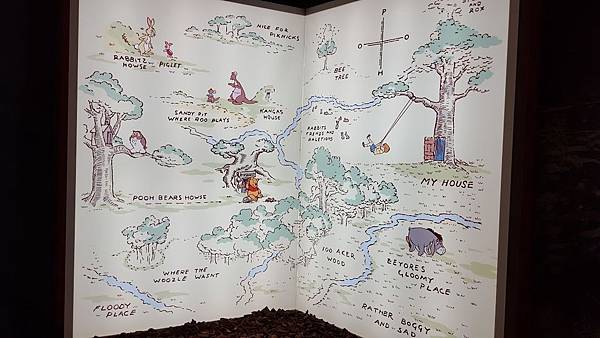 NICE FOR
PIKNICKS
RABBITS
HOWSE
PIGLET
SANDY PIT
WHERE ROO PLAYS
KANGAS
HOUSE
POOH BEARS HOWSE
WHERE THE
WOOZLE WASNT
FLOODY
PLACE
AND ROX
P
O
H
BEE
TREE
RABBITS
FRENDS AND
RALETIONS
MY HOUSE
100 ACER
WOOD
EEYORES
GLOOMY
PLACE
RATHER BOGGY
AND SAD